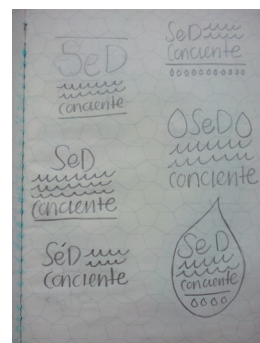 SeD
conciente
SeD
Conciente
SeD
conciente
OSeDO
conciente
SéD
conciente
SeD
conciente